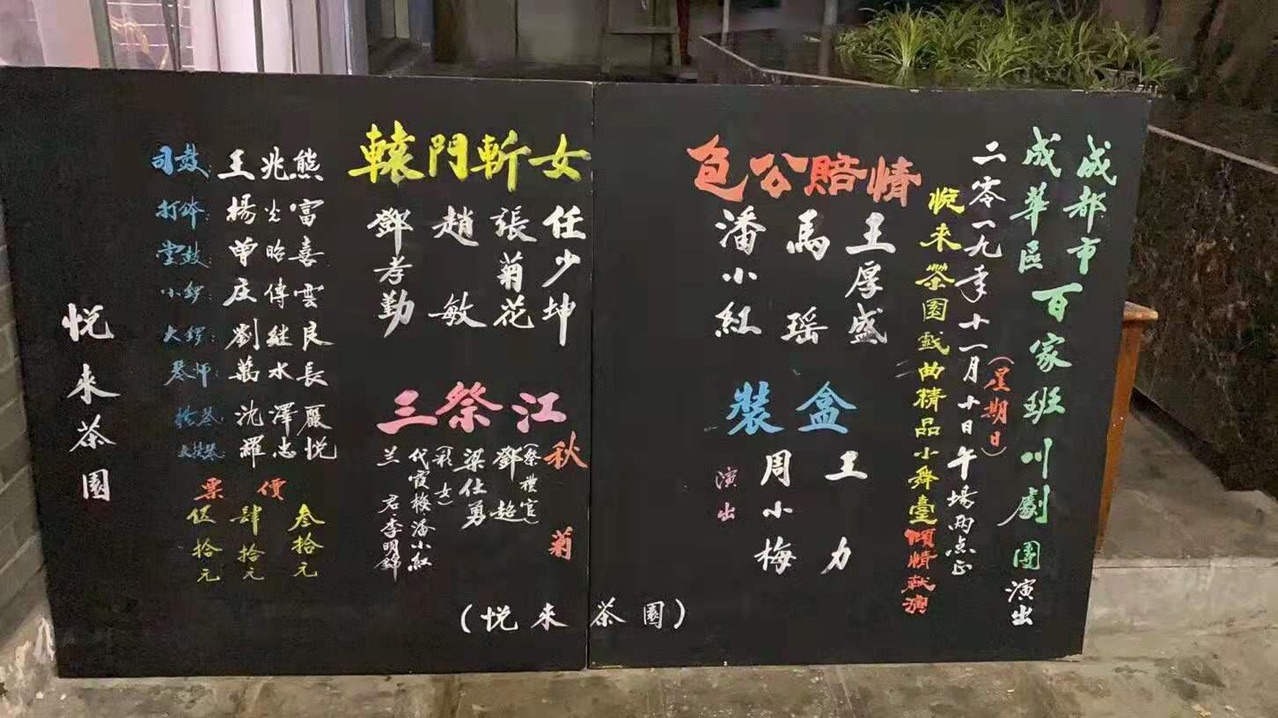 成都市
成華區
百家班川劇團演出
二零一九年十一月十日(星期日)午場兩点正
悅来茶園戲曲精品小舞臺傾情献演
包公賠情
王厚盛
馬瑶
潘小紅
裝盒
王力
周小梅
演出
轅門斬女
任少坤
張菊花
趙敏
鄧孝勤
三祭江
秋菊
(祭禮官)
鄧超
梁仕勇
(彩女)
代霞梅 潘小紅
兰君·李明錦
司鼓:王兆熊
打钵:楊光富
堂鼓:曾昭喜
小鑼:庄傳雲
大鑼:劉继良
琴師:萬水長
揚琴:沈澤麗
大提琴:羅忠悅
票價
叁拾元
肆拾元
伍拾元
悅来茶園
(悅来茶園)